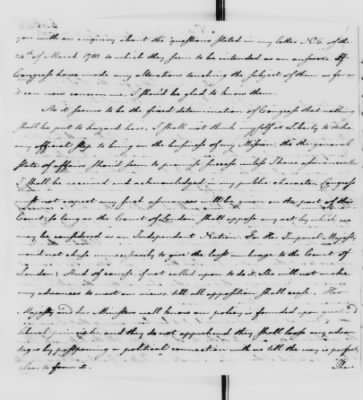 you with an enquiry about the questions stated in my letter No. 6. of the
24th of March 1782 to which they seem to be intended as an answer. If
Congress have made any alterations touching the subject of them as far as
it can now concern me, I should be glad to know them.
As it seems to be the fixed determination of Congress that nothing
shall be put to hazard here, I shall not think myself at Liberty to take
any official step to bring on the business of my Mission, tho' the general
state of affairs should seem to promise success unless I have assurances
I shall be received and acknowledged in my public character. Congress
must not expect any such assurances will be given on the part of this
Court, so long as the Court of London shall oppose any act by which we
may be considered as an Independent Nation. For Her Imperial Majesty
would not chuse unnecessarily to give the least umbrage to the Court of
London, And of course if not called upon to do it, she will not make
any advances to meet our views till all opposition shall cease. Her
Majesty and her Ministers well know our policy is founded upon
liberal principles and they do not apprehend they shall lose any advan-
tages by postponing a political connection with us till the way is perfectly
clear to form it.